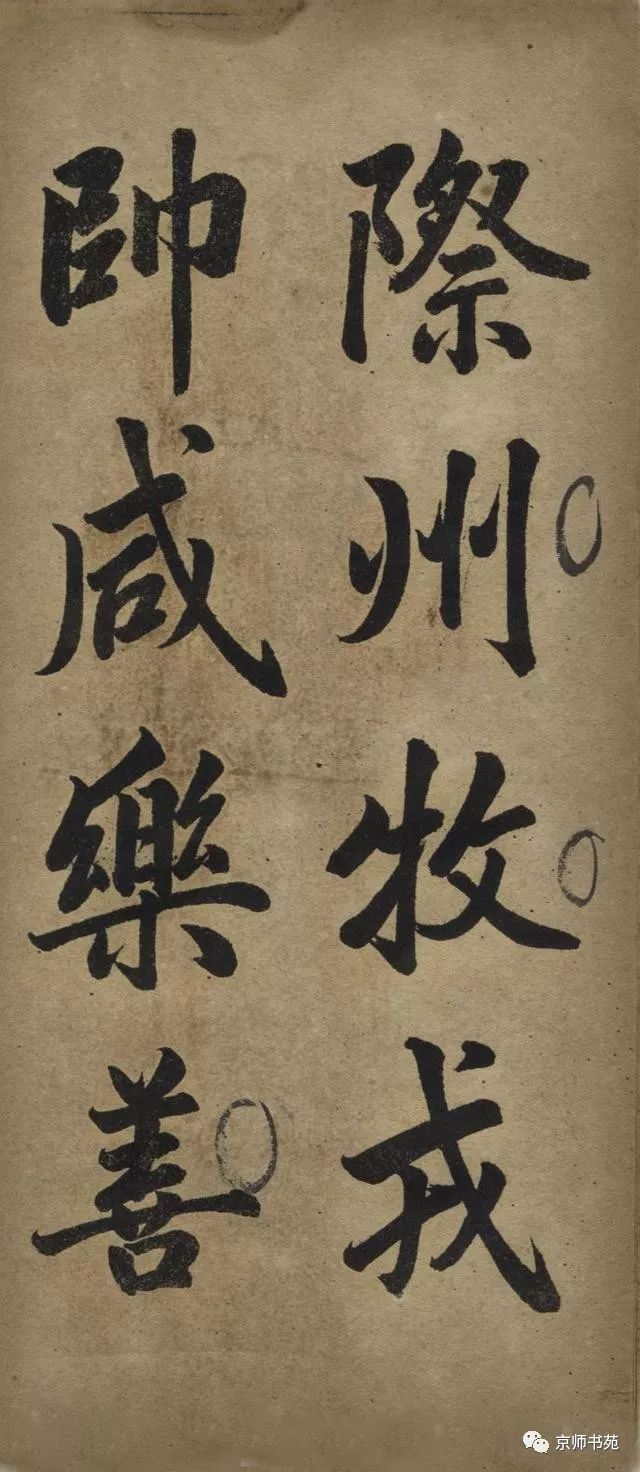 際州牧戎
帥咸樂善
京师书苑